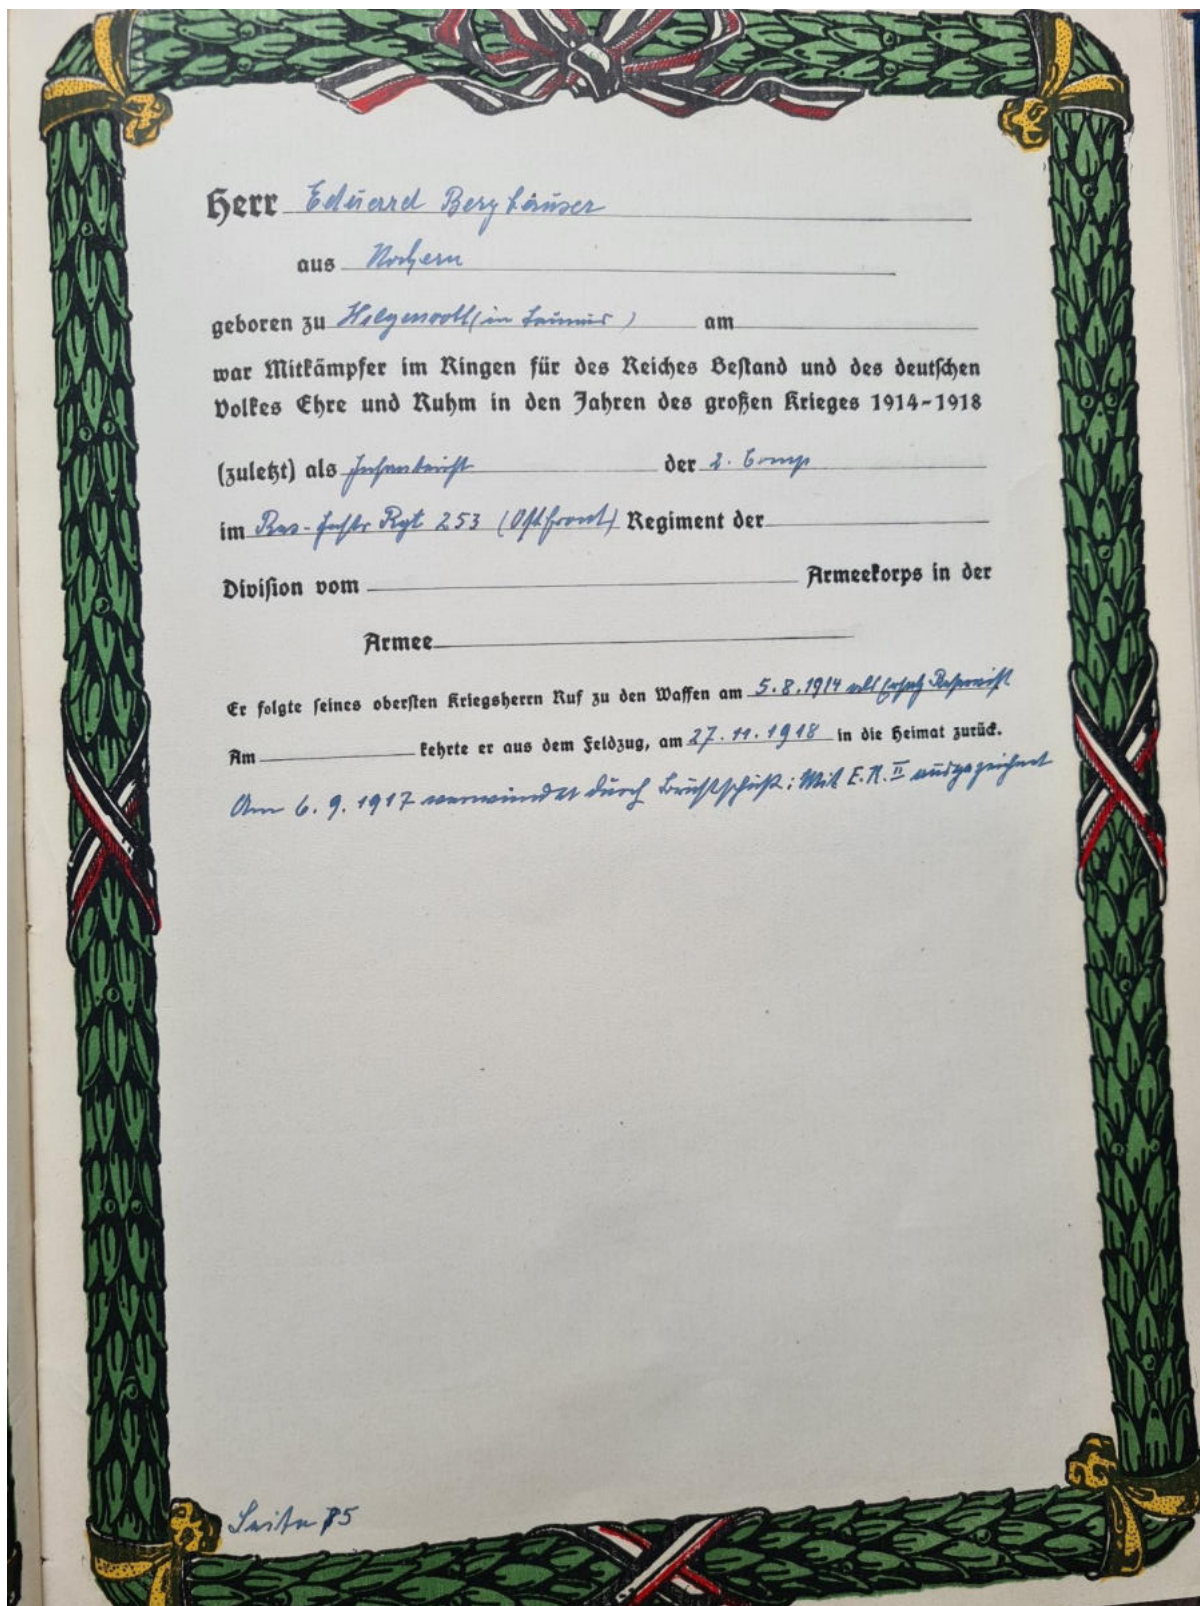 Herr Eduard Berghäuser
aus Nochern
geboren zu (in Taunus) am
war Mitkämpfer im Ringen für des Reiches Bestand und des deutschen
Volkes Ehre und Ruhm in den Jahren des großen Krieges 1914-1918
(zuletzt) als Infanterist der 2. Comp
im Res-Inftr Rgt 253 (Ostfront) Regiment der
Division vom Armeekorps in der
Armee
Er folgte seines obersten Kriegsherrn Ruf zu den Waffen am 5.8.1914 als Ersatz Reservist
Am kehrte er aus dem Feldzug, am 27.11.1918 in die Heimat zurück.
Am 6.9.1917 verwundet durch Brustschuß; Mit E.K. II ausgezeichnet
Seite 85